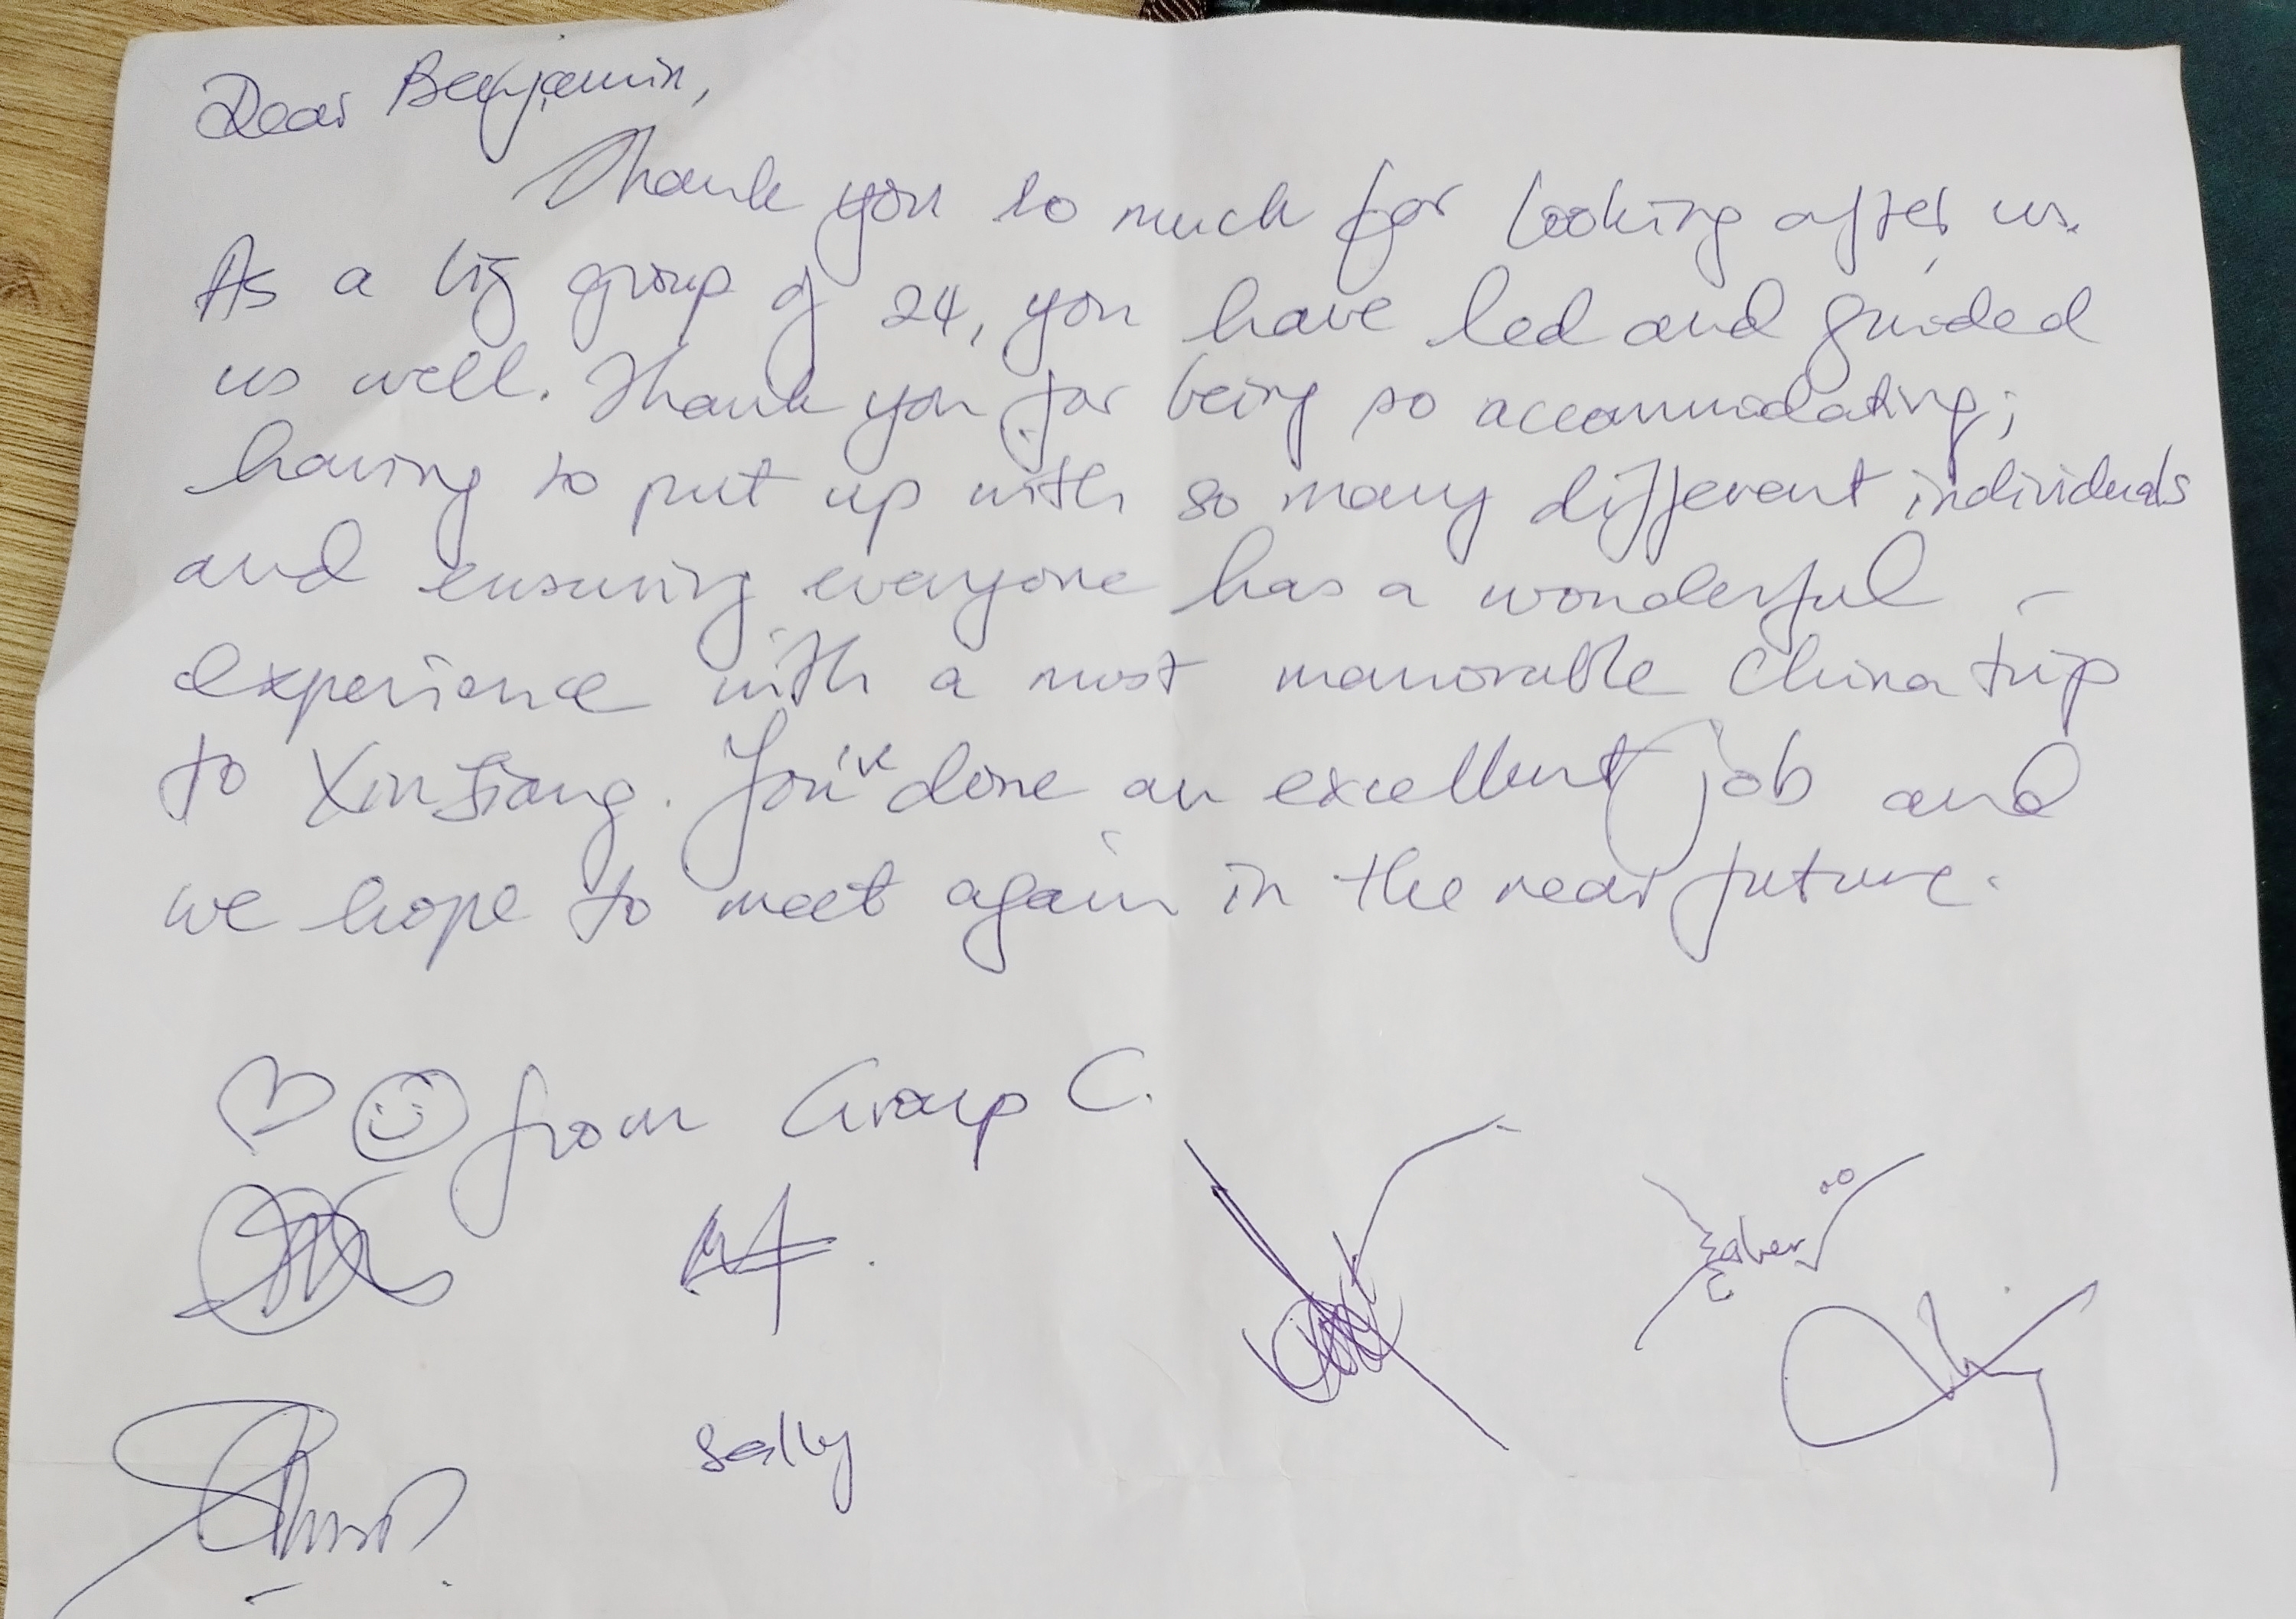 Dear Benjamin,
Thank you so much for looking after us.
As a big group of 24, you have led and guided
us well. Thank you for being so accommodating;
having to put up with so many different individuals
and ensuring everyone has a wonderful -
experience with a most memorable China trip
to XinJiang. You've done an excellent job and
we hope to meet again in the near future.
from Group C.
Sally